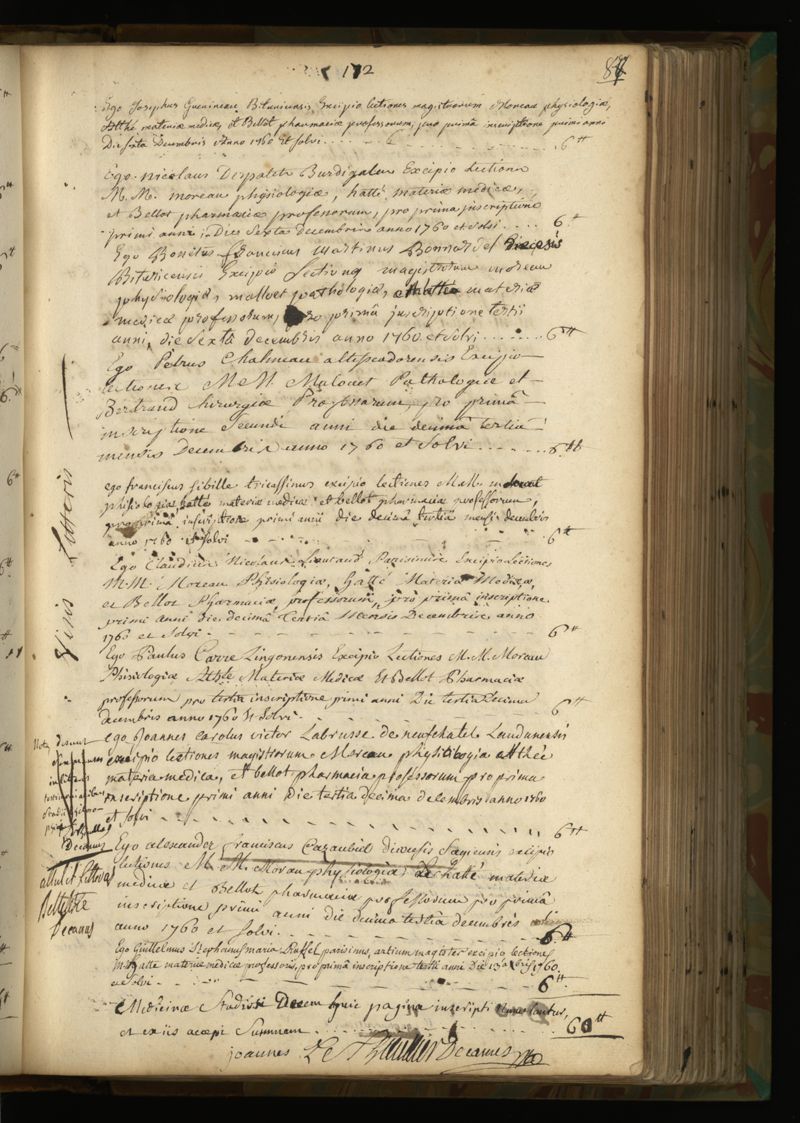 172
Ego Josephus Guenineau Bituricensis Excipio lectiones magistrorum Moreau physiologiæ,
Atthé materiæ medicæ, et Bellot pharmaciæ professorum, pro primâ inscriptione primi anni
Die sexta Decembris Anno 1760 Et solvi 6tt
Ego Nicolaus Burdigalen Excipio Lectiones
M. M. moreau physiologiæ, hatté materiæ medicæ,
et Bellot pharmaciæ professorum, pro prima inscriptione
primi anni Die Sexta decembris anno 1760 et solvi 6tt
Ego Bonitus franciscus Martinus Bonnardel Diecesis
Bituricensis Excipio Lectiones magistrorum moreau
physiologiæ, malloet pathologiæ, et hatté materiæ
medicæ professorum, pro primâ inscriptione tertii
anni, die Sextâ decembris anno 1760 et solvi 6tt
Ego Petrus Chalmeau altissiodorensis Excipio
lectiones M et M Malouet Pathologiæ et
Bertrand hirurgiæ Professorum, pro primâ
inscriptione Secundi anni die decimâ tertiâ
mensis Decembris anno 1760 et Solvi 6tt
ego franciscus sibille tricassinus excipio lectiones M. M.
phisiologiæ, hatté materiæ medicæ et bellot pharmaciæ professorum,
pro prima inscriptione primi anni die decimâ tertiâ mensis decembris
anno 1760 et solvi 6tt
Ego Claudius Nicolaus Parisinus Excipio Lectiones
M. M. Moreau Phisiologiæ, hatté Materiæ Medicæ,
et Bellot Pharmaciæ, professorum, pro primâ inscriptione
primi anni die decimâ Tertiâ Mensis Decembris anno
1760 et solvi 6tt
Ego Paulus Carre Lingonensis Excipio Lectiones M. M. Moreau
Phisiologiæ Atthé Materiæ Medicæ Et Bellot Pharmaciæ
professorum pro tertia inscriptione primi anni Die tertia Decima
decembris anno 1760 Et Solvi 6tt
ego Joannes carolus victor Labrusse de neufchatel Laudunensis
excipio lectiones magistrorum Moreau atthée
materia medica, et bellot pharmacia professorum pro prima
inscriptione primi anni Die tertia decima decembris anno 1760
et solvi 6tt
Ego alexander franciscus Cazaubiel diocesis excipio
lectiones M. M. Moreau physiologiæ hatté materiæ
medicæ et Bellot pharmaciæ professorum pro primâ
inscriptione primi anni die decima tertia decembris
anno 1760 et solvi 6tt
Ego Guillelmus Stephanus maria parisinus, artium magister excipio lectiones
M. hatte materiæ medicæ professoris, pro primâ inscriptione tertii anni Die 13a Xbris 1760
et solvi 6tt
Medicinæ Studiosi Decem hac pagina inscripti numerantur,
et ex iis accepi Summam 60tt
joannes Decanus
Sinis Litteris
Nota desunt
Decanus
Decanus